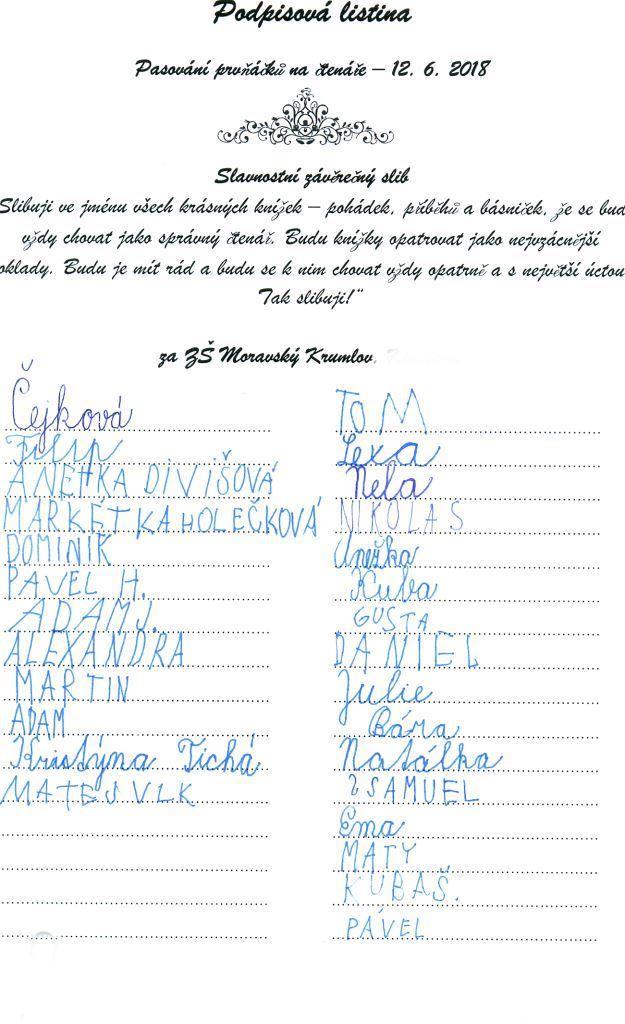 Podpisová listina
Pasování prvňáčků na čtenáře – 12. 6. 2018
Slavnostní závěrečný slib
Slibuji ve jménu všech krásných knížek – pohádek, příběhů a básniček, že se bud
vždy chovat jako správný čtenář. Budu knížky opatrovat jako nejvzácnější
oklady. Budu je mít rád a budu se k nim chovat vždy opatrně a s největší úctou
Tak slibuji!“
za ZŠ Moravský Krumlov,
Čejková
Filip
ANEŽKA DIVIŠOVÁ
MARKÉTKA HOLEČKOVÁ
DOMINIK
PAVEL H.
ADAM J.
ALEXANDRA
MARTIN
ADAM
Kristýna Tichá
MATEJ VLK
TOM
Lexa
Nela
NIKOLAS
Anežka
Kuba
GUSTA
DANIEL
Julie
Bára
Natálka
SAMUEL
Ema
MATY
KUBA Š.
PAVEL